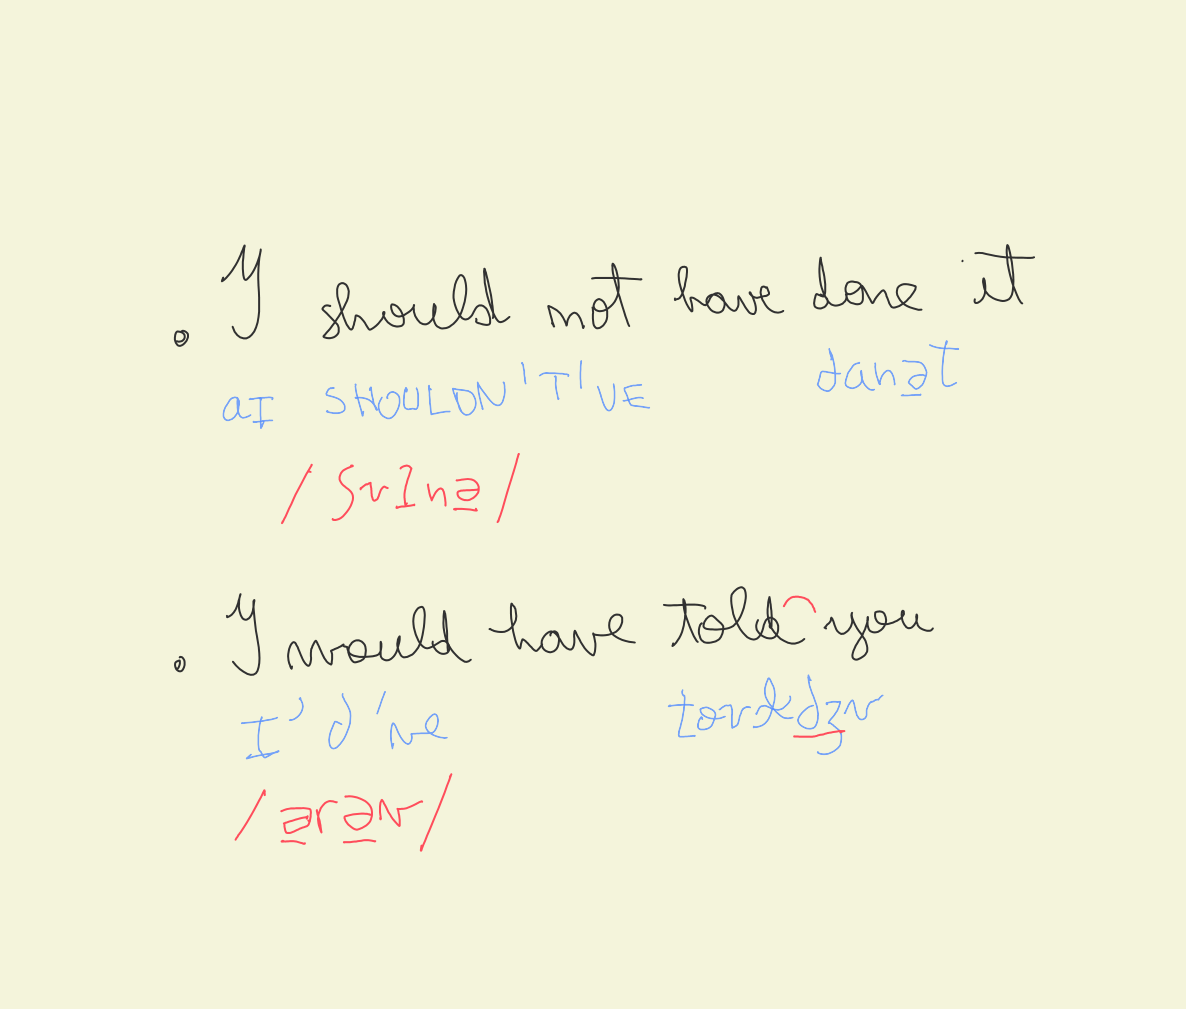 I should not have done it
aI SHOULDN'T'VE danət
/ʃʊɪnə/
I would have told you
I'd've toʊɫdʒʊ
/ərəv/